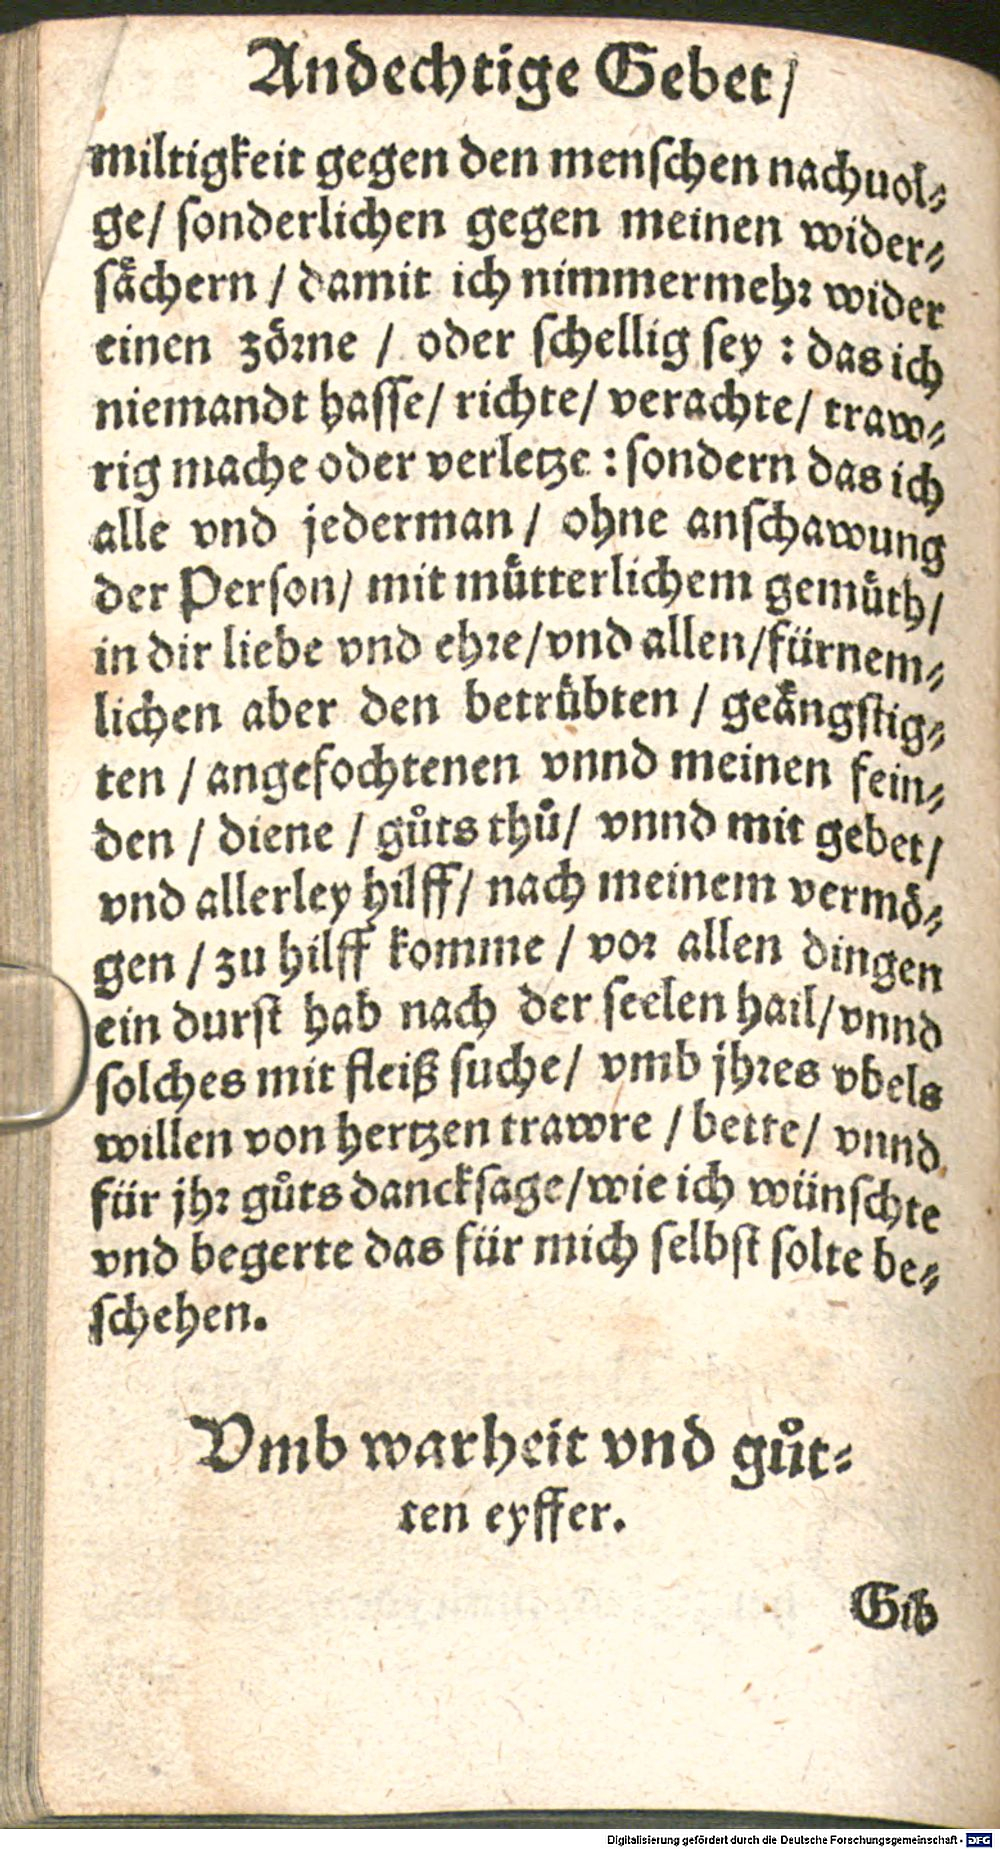 Andechtige Gebet/
miltigkeit gegen den menſchen nachuol⸗
ge/ ſonderlichen gegen meinen wider⸗
ſaͤchern / damit ich nimmermehꝛ wider
einen zoͤꝛne / oder ſchellig ſey : das ich
niemandt haſſe/ richte/ verachte/ traw⸗
rig mache oder verletze : ſondern das ich
alle vnd jederman / ohne anſchawung
der Perſon/ mit muͤtterlichem gemuͤth/
in dir liebe vnd ehꝛe/vnd allen/fürnem⸗
lichen aber den betruͤbten / geaͤngſtig⸗
ten / angefochtenen vnnd meinen fein⸗
den / diene / guͦts thuͦ/ vnnd mit gebet/
vnd allerley hilff/ nach meinem vermoͤ⸗
gen / zu hilff komme / voꝛ allen dingen
ein durſt hab nach der ſeelen hail/vnnd
ſolches mit fleiß ſuche/ vmb jhꝛes vbels
willen von hertzen trawre / bette/ vnnd
für jhꝛ guͦts danckſage/wie ich wünſchte
vnd begerte das für mich ſelbſt ſolte be⸗
ſchehen.
Vmb warheit vnd guͦt⸗
ten eyffer.
Gib
Digitalisierung gefördert durch die Deutsche Forschungsgemeinschaft - DFG